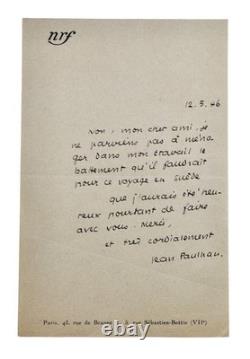 nrf
12.3.46
Non, mon cher ami, je
ne parviens pas à ména-
ger dans mon travail le
battement qu'il faudrait
pour ce voyage en Suède
que j'aurais été heu-
reux pourtant de faire
avec vous. Merci,
et très cordialement
Jean Paulhan.
Paris, 43, rue de Beaune — 5, rue Sébastien-Bottin (VIIe)
ebay
withCarl